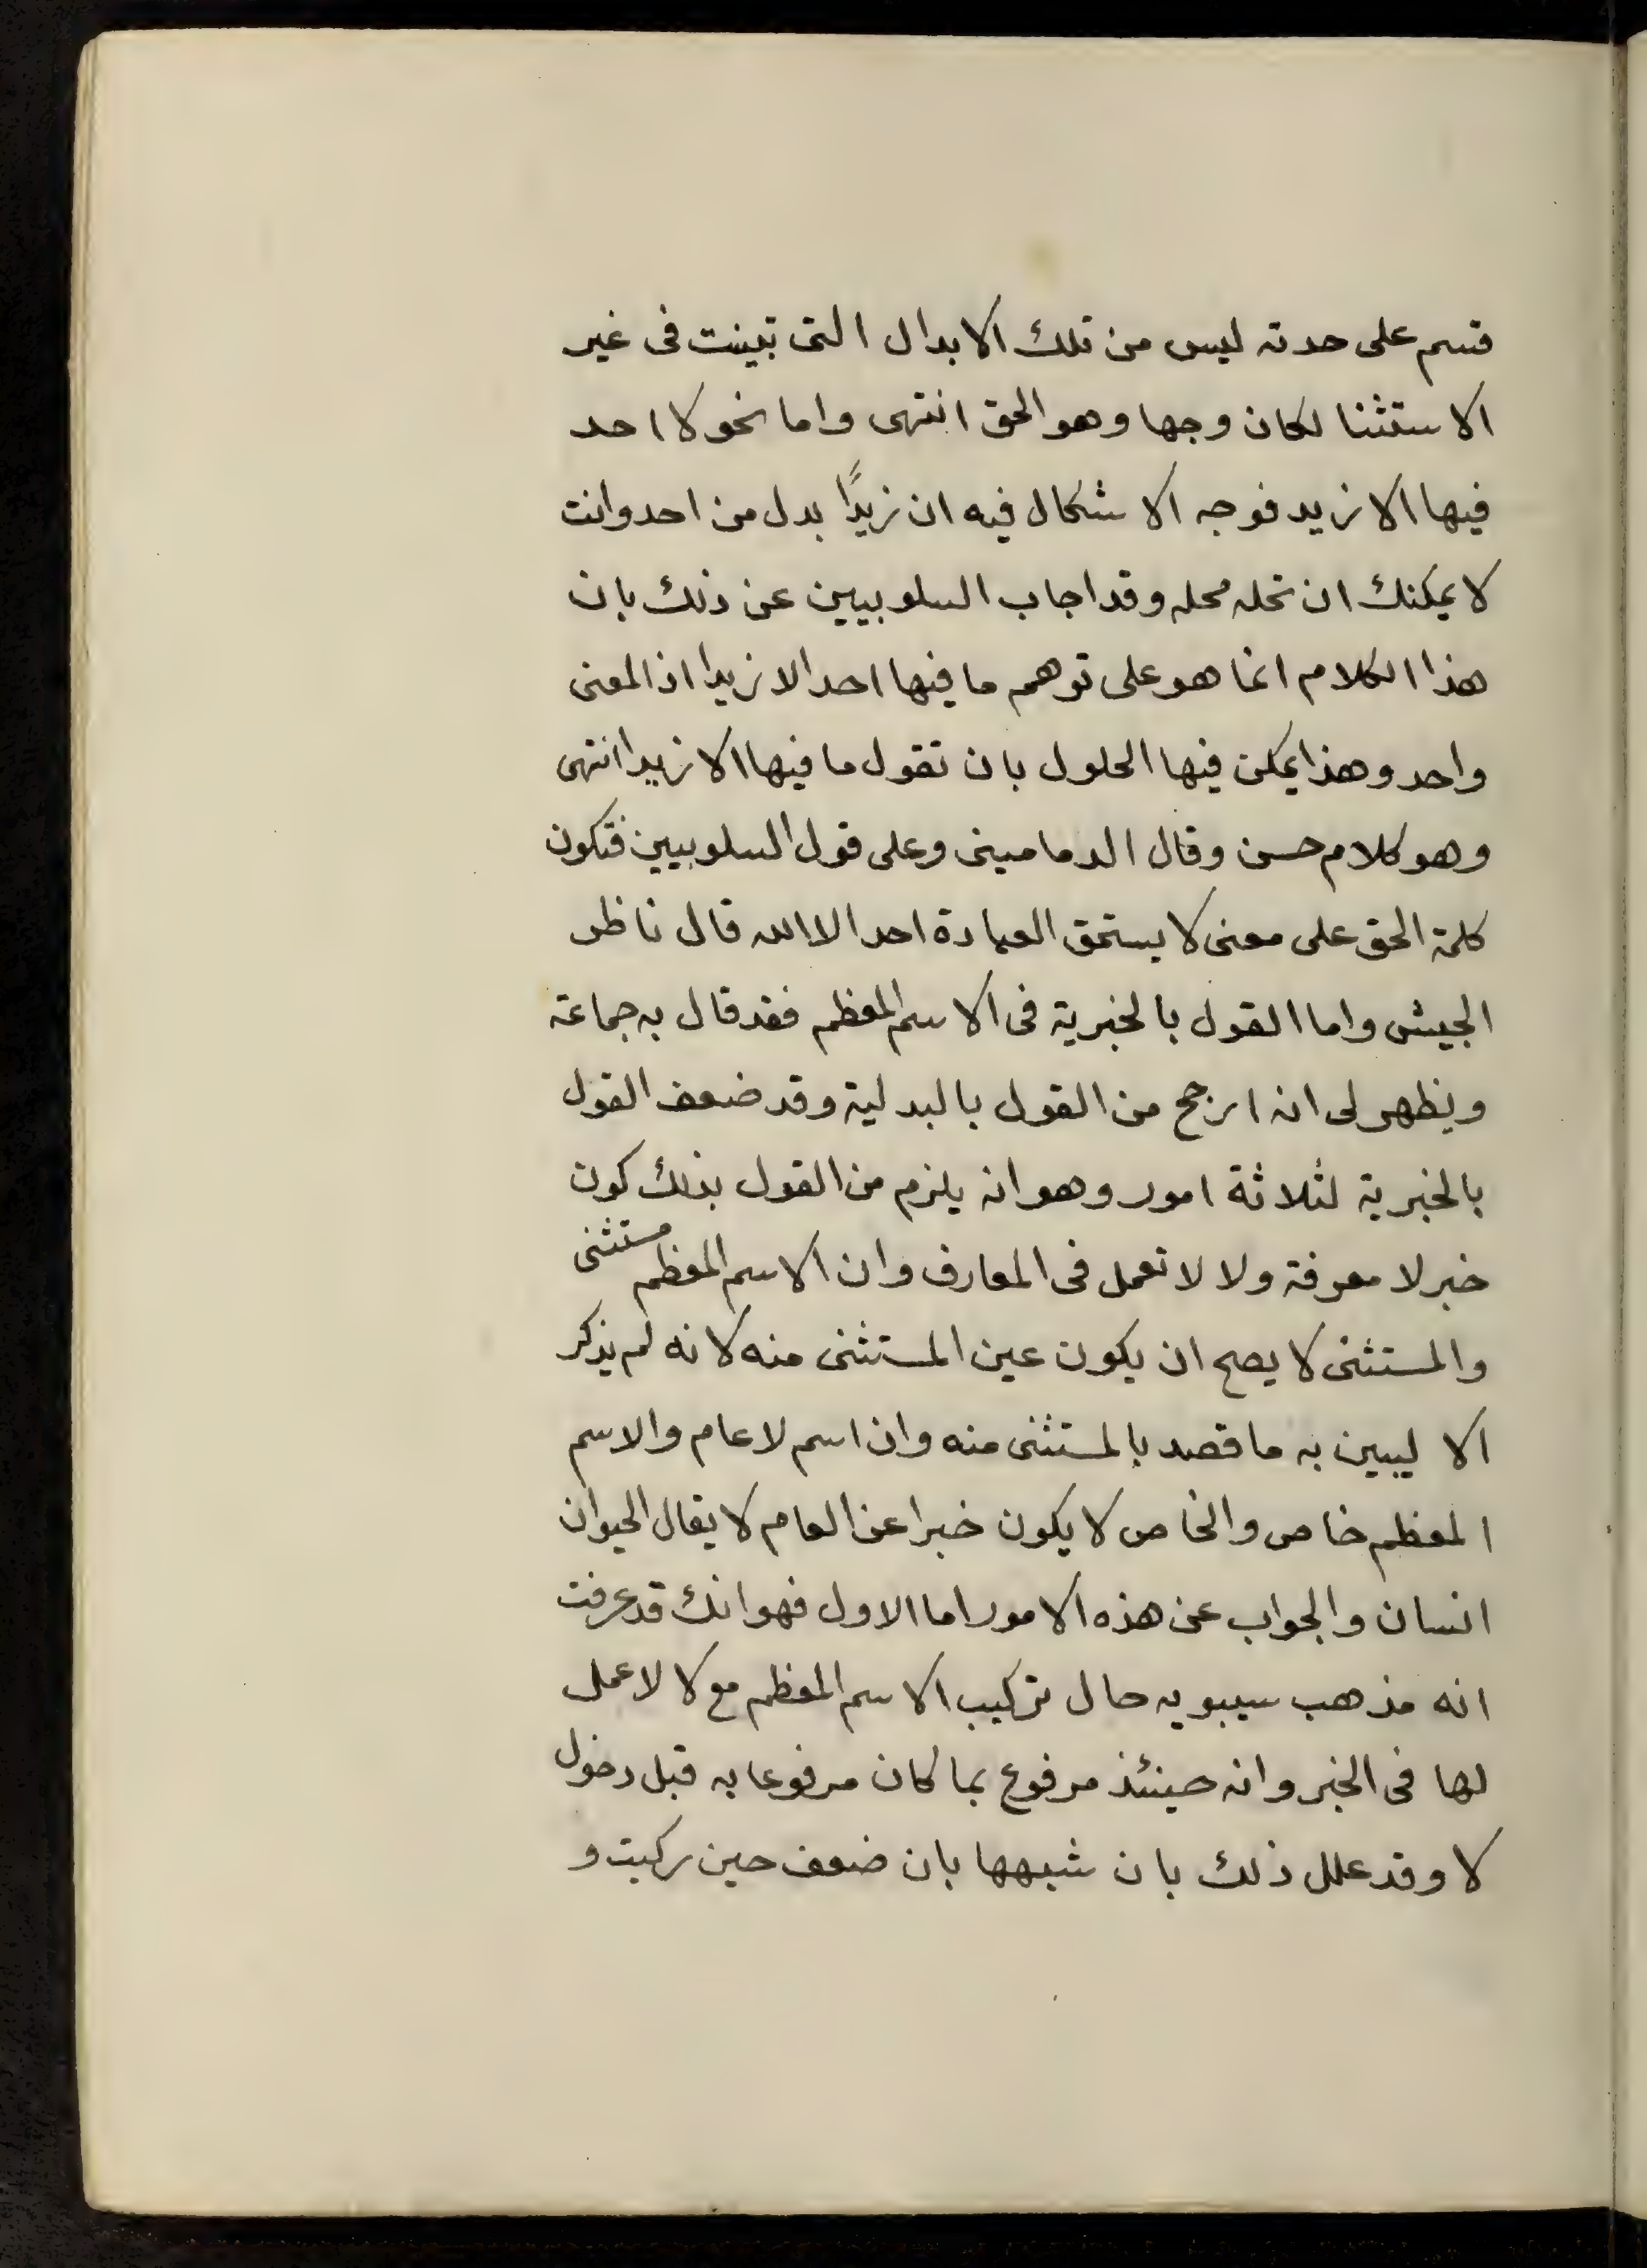 قسم على حدته ليس من تلك الابدال التى تبينت فى غير
الاستثنا لكان وجها وهو الحق انتهى واما نحو لا احد
فيها الا زيد فوجه الاشكال فيه ان زيدًا بدل من احد وانت
لا يمكنك ان تحله محله وقد اجاب السلوبيين عن ذلك بان
هذا الكلام انما هو على توهم ما فيها احد الا زيدا اذ المعنى
واحد وهذا يمكن فيها الحلول بان تقول ما فيها الا زيدا انتهى
وهو كلام حسن وقال الدمامينى وعلى قول السلوبيين فتكون
كلمة الحق على معنى لا يستحق العبادة احد الا الله قال ناظر
الجيش واما القول بالخبرية فى الاسم المعظم فقد قال به جماعة
ويظهر لى انه ارجح من القول بالبدلية وقد ضعف القول
بالخبرية لثلاثة امور وهو انه يلزم من القول بذلك كون
خبر لا معرفة ولا لا تعمل فى المعارف وان الاسم المعظم مستثنى
والمستثنى لا يصح ان يكون عين المستثنى منه لانه لم يذكر
الا ليبين به ما قصد بالمستثنى منه وان اسم لا عام والاسم
المعظم خاص والخاص لا يكون خبرا عن العام لا يقال الحيوان
انسان والجواب عن هذه الامور اما الاول فهو انك قد عرفت
انه مذهب سيبويه حال تركيب الاسم المعظم مع لا لا عمل
لها فى الخبر وانه حينئذ مرفوع بما كان مرفوعا به قبل دخول
لا وقد علل ذلك بان شبهها بان ضعف حين ركبت و